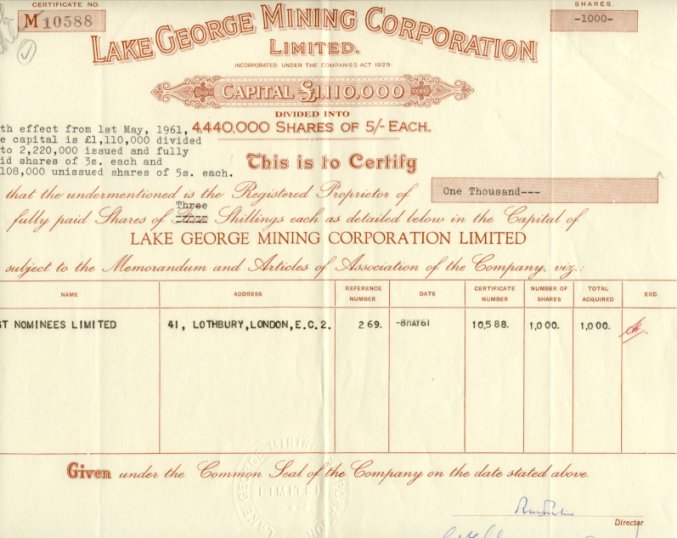 CERTIFICATE NO.
M 10588
SHARES.
-1000-
LAKE GEORGE MINING CORPORATION
LIMITED.
INCORPORATED UNDER THE COMPANIES ACT 1929.
CAPITAL £1,110,000
DIVIDED INTO
4,440,000 SHARES OF 5/- EACH.
th effect from 1st May, 1961,
e capital is £1,110,000 divided
to 2,220,000 issued and fully
id shares of 3s. each and
108,000 unissued shares of 5s. each.
This is to Certify
that the undermentioned is the Registered Proprietor of One Thousand---
Three
fully paid Shares of Shillings each as detailed below in the Capital of
LAKE GEORGE MINING CORPORATION LIMITED
subject to the Memorandum and Articles of Association of the Company, viz.:
NAME ADDRESS REFERENCE NUMBER DATE CERTIFICATE NUMBER NUMBER OF SHARES TOTAL ACQUIRED EXD.
ST NOMINEES LIMITED 41, LOTHBURY, LONDON, E.C.2. 269. -8MAY61 10,588. 1,000. 1,000.
Given under the Common Seal of the Company on the date stated above.
LAKE GEORGE MINING CORPORATION
LIMITED
Director